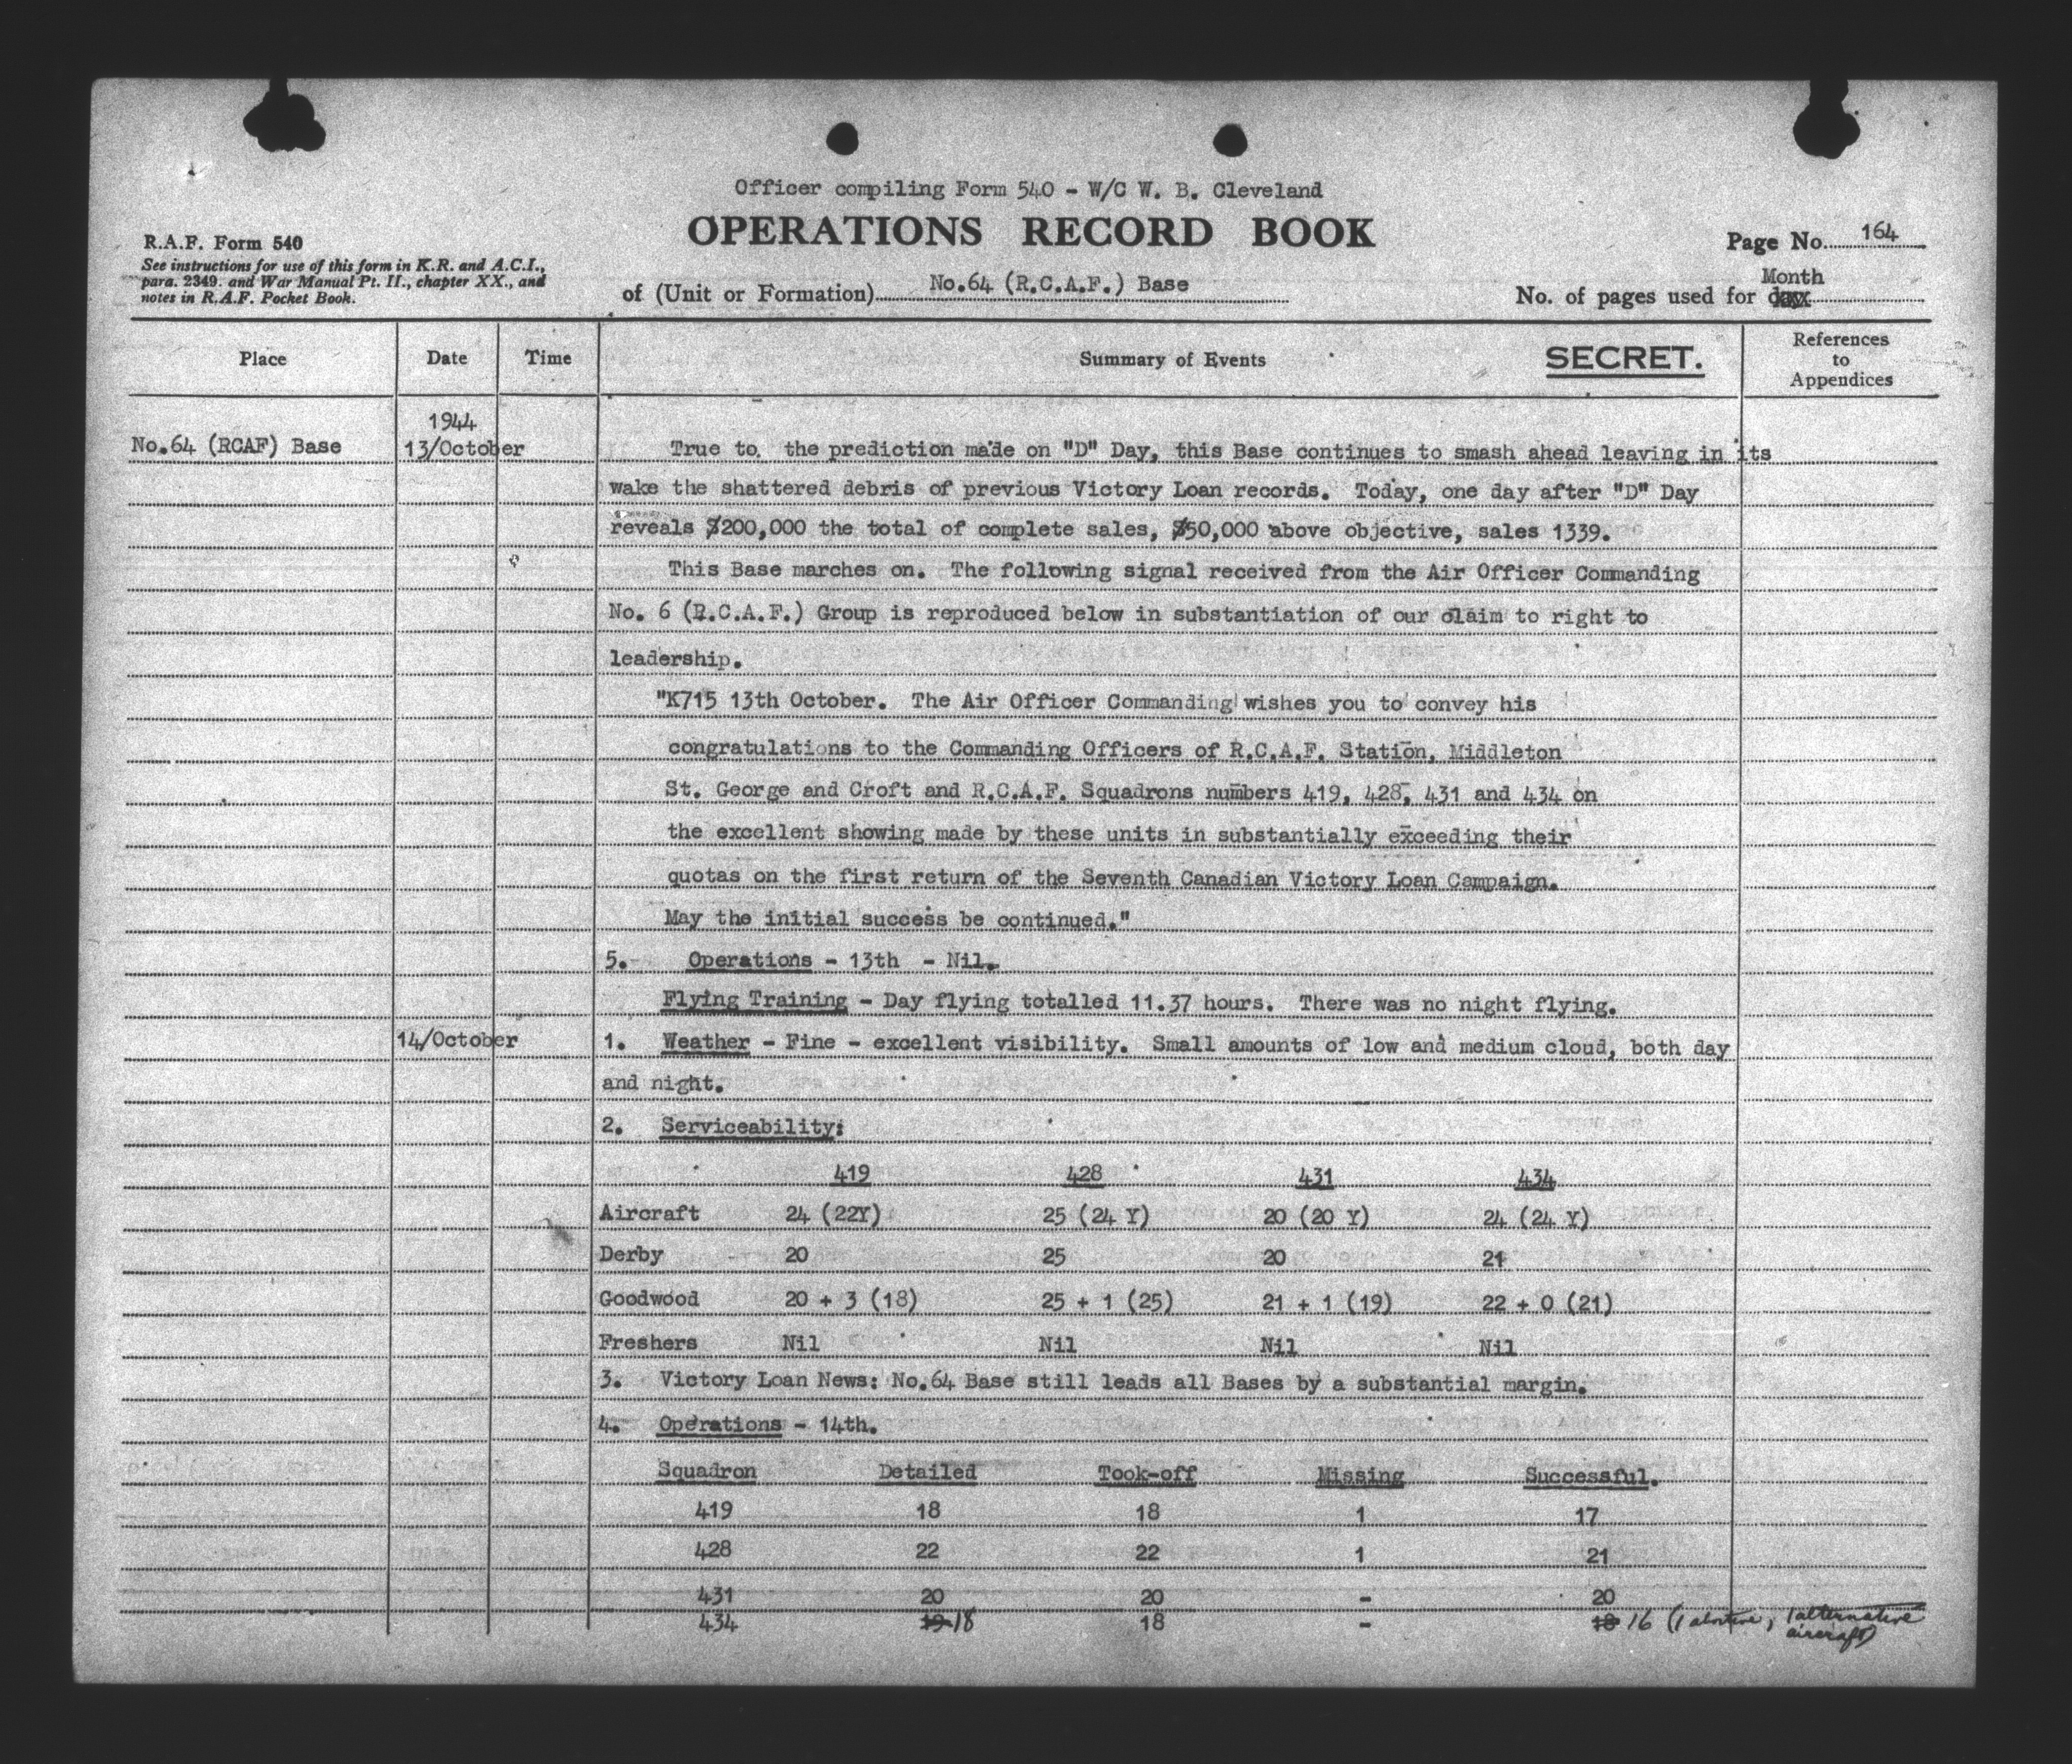 Officer compiling Form 540 - W/C W. B. Cleveland
OPERATIONS RECORD BOOK
R.A.F. Form 540
See instructions for use of this form in K.R. and A.C.I.,
para. 2349. and War Manual Pt. II., chapter XX., and
notes in R.A.F. Pocket Book.
of (Unit or Formation) No.64 (R.C.A.F.) Base
Page No. 164
Month
No. of pages used for day
Place Date Time Summary of Events SECRET. References to Appendices
1944
No.64 (RCAF) Base 13/October True to. the prediction made on "D" Day, this Base continues to smash ahead leaving in its
wake the shattered debris of previous Victory Loan records. Today, one day after "D" Day
reveals $200,000 the total of complete sales, $50,000 above objective, sales 1339.
This Base marches on. The following signal received from the Air Officer Commanding
No. 6 (R.C.A.F.) Group is reproduced below in substantiation of our claim to right to
leadership.
"K715 13th October. The Air Officer Commanding wishes you to convey his
congratulations to the Commanding Officers of R.C.A.F. Station, Middleton
St. George and Croft and R.C.A.F. Squadrons numbers 419, 428, 431 and 434 on
the excellent showing made by these units in substantially exceeding their
quotas on the first return of the Seventh Canadian Victory Loan Campaign.
May the initial success be continued."
5. Operations - 13th - Nil.
Flying Training - Day flying totalled 11.37 hours. There was no night flying.
14/October 1. Weather - Fine - excellent visibility. Small amounts of low and medium cloud, both day
and night.
2. Serviceability:
419 428 431 434
Aircraft 24 (22Y) 25 (24 Y) 20 (20 Y) 24 (24 Y)
Derby 20 25 20 21
Goodwood 20 + 3 (18) 25 + 1 (25) 21 + 1 (19) 22 + 0 (21)
Freshers Nil Nil Nil Nil
3. Victory Loan News: No.64 Base still leads all Bases by a substantial margin.
4. Operations - 14th.
Squadron Detailed Took-off Missing Successful.
419 18 18 1 17
428 22 22 1 21
431 20 20 - 20
434 19 18 18 - 18 16 (1 abortive, 1 alternative
aircraft)